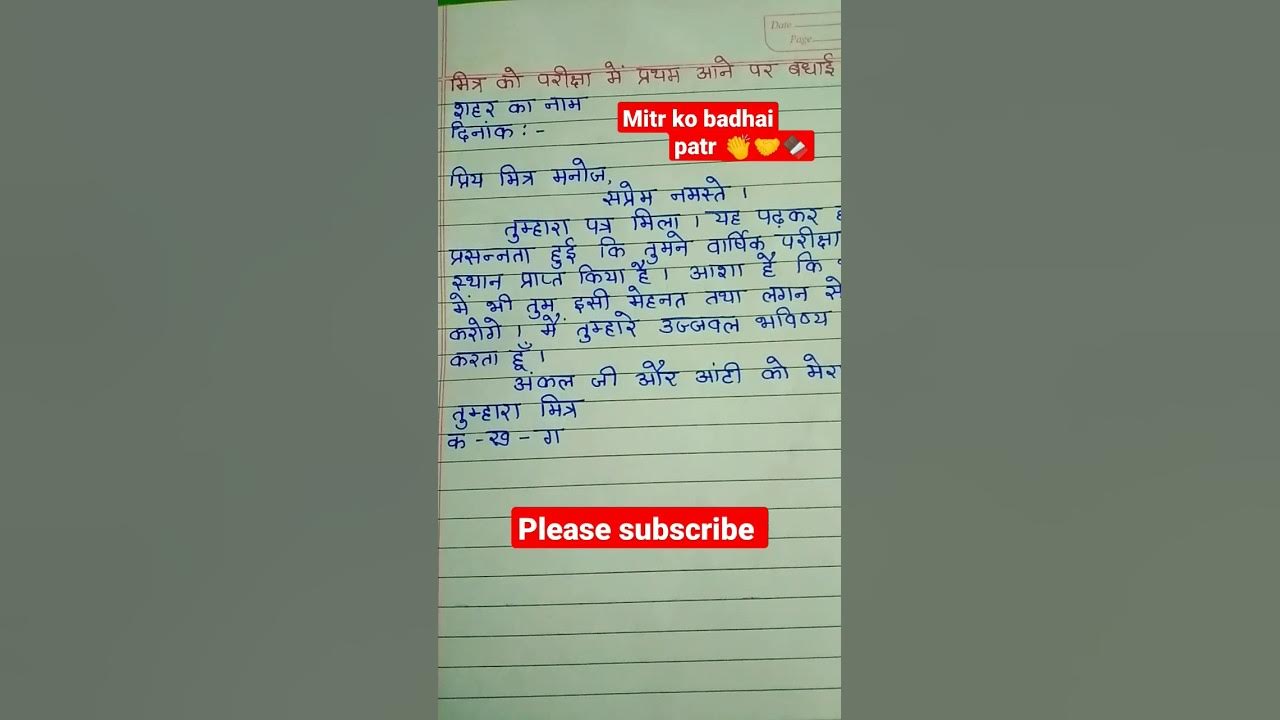 Date
Page
मित्र को परीक्षा में प्रथम आने पर बधाई
शहर का नाम
दिनांक : -
Mitr ko badhai
patr 👏🤝🍫
प्रिय मित्र मनोज,
सप्रेम नमस्ते ।
तुम्हारा पत्र मिला । यह पढ़कर
प्रसन्नता हुई कि तुमने वार्षिक परीक्षा
स्थान प्राप्त किया है । आशा है कि
में भी तुम इसी मेहनत तथा लगन से
करोगे । मैं तुम्हारे उज्जवल भविष्य
करता हूँ ।
अंकल जी और आंटी को मेरा
तुम्हारा मित्र
क - ख - ग
Please subscribe